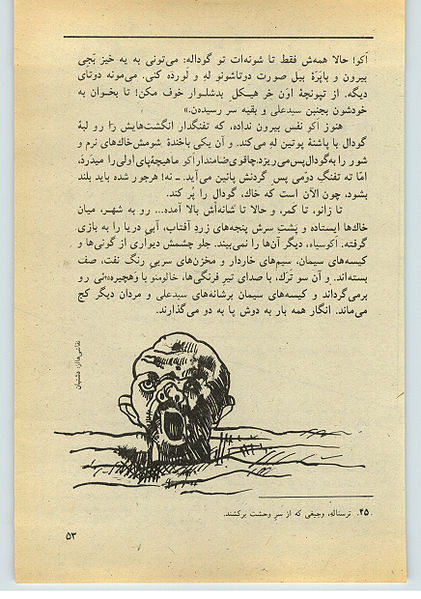 اَکو! حالا همه‌ش فقط تا شونه‌ات تو گوداله: می‌تونی به یه خیز بَجی
بیرون و با پَرّهٔ بیل صورت دوتاشونو لهِ و لَوَرده کنی. می‌مونه دوتای
دیگه. از تپونچهٔ اون خر هیکل بدشلوار خوف مکن! تا بخوان به
خودشون بجنبن سیدعلی و بقیه سر رسیده‌ن.»
هنوز اکو نفس بیرون نداده، که تفنگدار انگشت‌هایش را رو لبهٔ
گودال با پاشنهٔ پوتین لهِ می‌کند. و آن یکی باخندهٔ شومش خاک‌های نرم و
شور را به گودال پس می‌ریزد. چاقوی ضامندار اکو ماهیچهٔ پای اولی را میدَرَد،
امّا ته تفنگِ دوّمی پس گردنش پائین می‌آید. ـ نه! هرجور شده باید بلند
بشود، چون الآن است که خاك، گودال را پُر کند.
تا زانو، تا کمر، و حالا تا شانه‌اش بالا آمده... رو به شهر، میان
خاك‌ها ایستاده و پشتِ سرش پنجه‌های زردِ آفتاب، آبی دریا را به بازی
گرفته. اکوسیاه، دیگر آن‌ها را نمی‌بیند. جلو چشمش دیواری از گونی‌ها و
کیسه‌های سیمان، سیم‌های خاردار و مخزن‌های سربی رنگ نفت، صف
بسته‌اند. و آن سو تَرَك، با صدای تیرِ فرنگی‌ها، خالومنو با وَهچیره‌ئی رو
برمی‌گرداند و کیسه‌های سیمان برشانه‌های سیدعلی و مردان دیگر کج
می‌ماند. انگار همه بار به دوش پا به دو می‌گذارند.
نقاشی‌ها از: دشتیان
۴۵. ترسناله، وجیغی که از سرِ وحشت برکشند.
۵۳